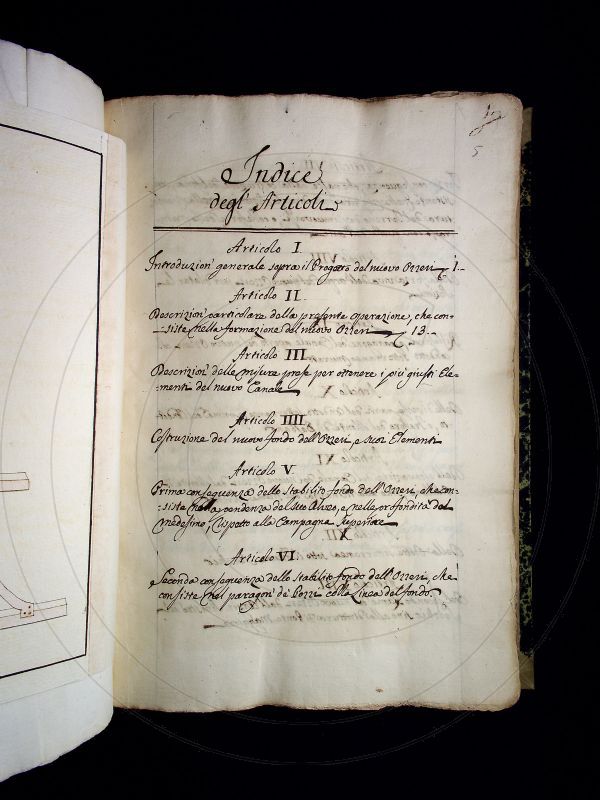 5
Indice
degl' Articoli
Articolo I
Introduzion' generale sopra il Progetto del nuovo Ozzeri 1.
Articolo II
Descrizion' particolare della presente operazione, che con-
siste nella formazione del nuovo Ozzeri 13.
Articolo III
Descrizion' delle misure prese per ottenere i più giusti Ele-
menti del nuovo Canale
Articolo IIII
Costruzione del nuovo fondo dell'Ozzeri, e suoi Elementi
Articolo V
Prima conseguenza dello stabilito fondo dell'Ozzeri, che con-
siste nella pendenza del suo Alveo, e nelle profondità del
medesimo, rispetto alla Campagna superiore
Articolo VI
Seconda conseguenza dello stabilito fondo dell'Ozzeri, che
consiste nel paragon' de' Pozzi colla Linea del fondo.